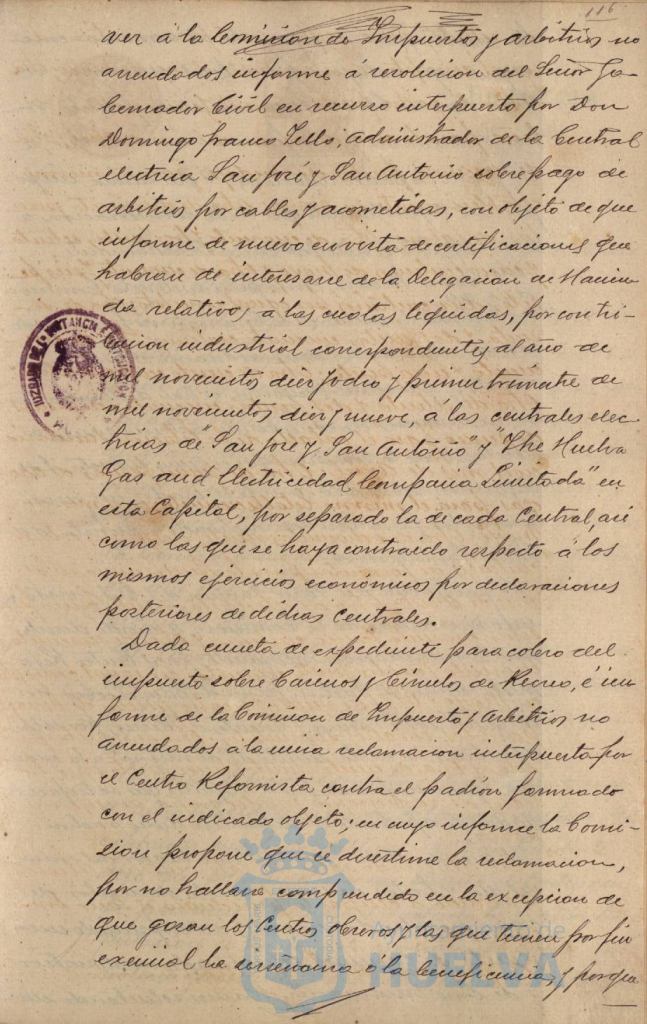 116
ver á la Comision de Impuestos y arbitrios no
arrendados informe á resolucion del Señor Go-
bernador Civil en recurso interpuesto por Don
Domingo franco Tello, administrador de la Central
electrica San José y San Antonio sobre pago de
arbitrios por cables y acometidas, con objeto de que
informe de nuevo en vista de certificaciones que
habran de interesarse de la Delegacion de Hacien-
da relativos á las cuotas liquidas, por contri-
bucion industrial correspondientes al año de
mil novecientos diez y ocho y primer trimestre de
mil novecientos diez y nueve, á las centrales elec-
tricas de "San José y San Antonio" y "The Huelva
Gas and Electricidad Compañia Limitada" en
esta Capital, por separado la de cada Central, asi
como las que se haya contraido respecto á los
mismos ejercicios económicos por declaraciones
posteriores de dichas Centrales.
Dada cuenta de expediente para cobro del
impuesto sobre Casinos y Circulos de Recreo, é in-
forme de la Comision de Impuestos y Arbitrios no
arrendados á la unica reclamacion interpuesta por
el Centro Reformista contra el padrón formado
con el indicado objeto; en cuyo informe la Comi-
sion propone que se desestime la reclamacion,
por no hallarse comprendido en la excepcion de
que gozan los Centros obreros y las que tienen por fin
exencial la enseñanza ó la beneficencia, y porque
JUZGADO DE 1ª INSTANCIA É INSTRUCCION
Ayuntamiento de
HUELVA